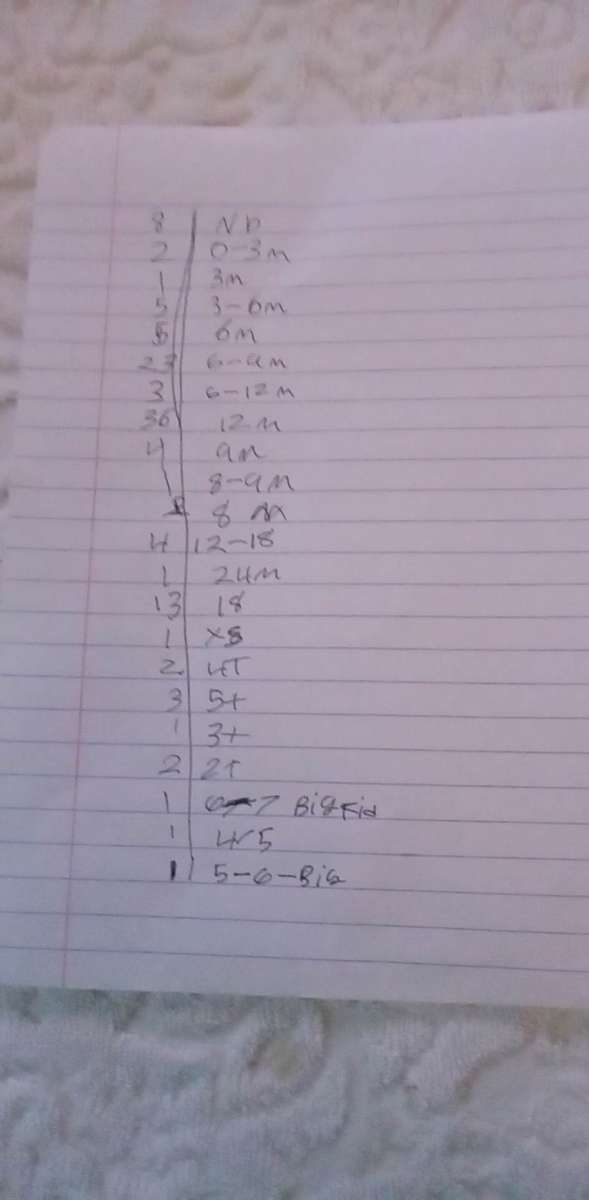 8 | NB
2 | 0-3m
1 | 3m
5 | 3-6m
5 | 6m
23 | 6-9m
3 | 6-12m
36 | 12m
4 | 9m
1 | 8-9m
8 m
4 | 12-18
1 | 24m
13 | 18
1 | XS
2 | 4T
3 | 5t
1 | 3t
2 | 2t
1 | 6-7 Big Kid
1 | 4-5
1 | 5-6-Big